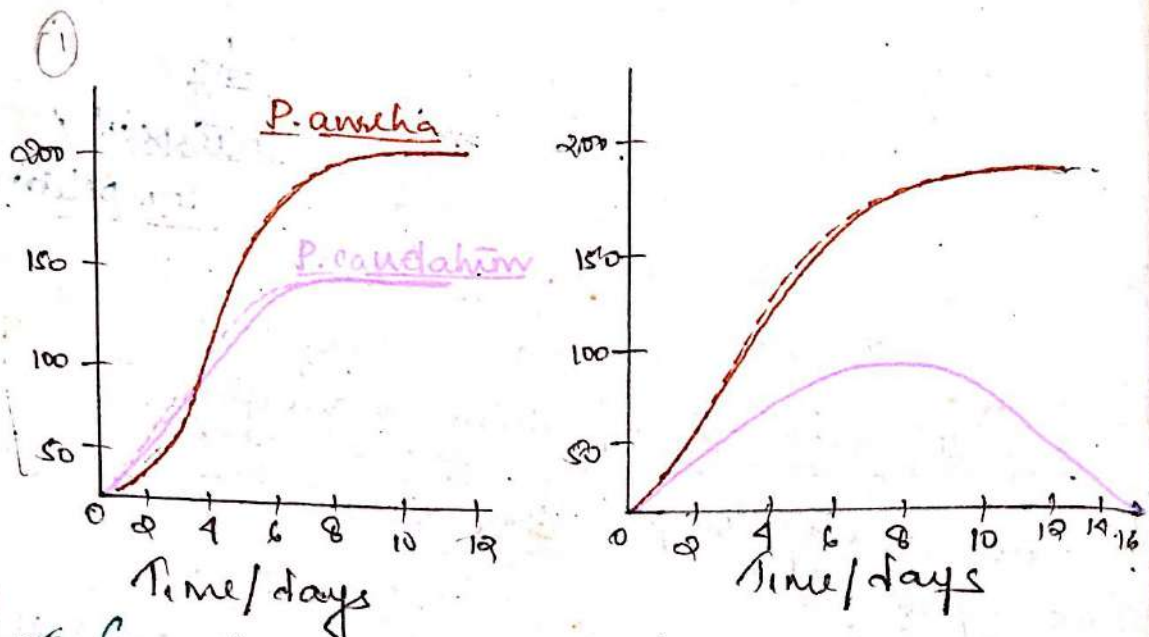 1
P. aurelia
200
150
P. caudatum
100
50
0 2 4 6 8 10 12
Time/days
200
150
100
50
0 2 4 6 8 10 12 14 16
Time/days